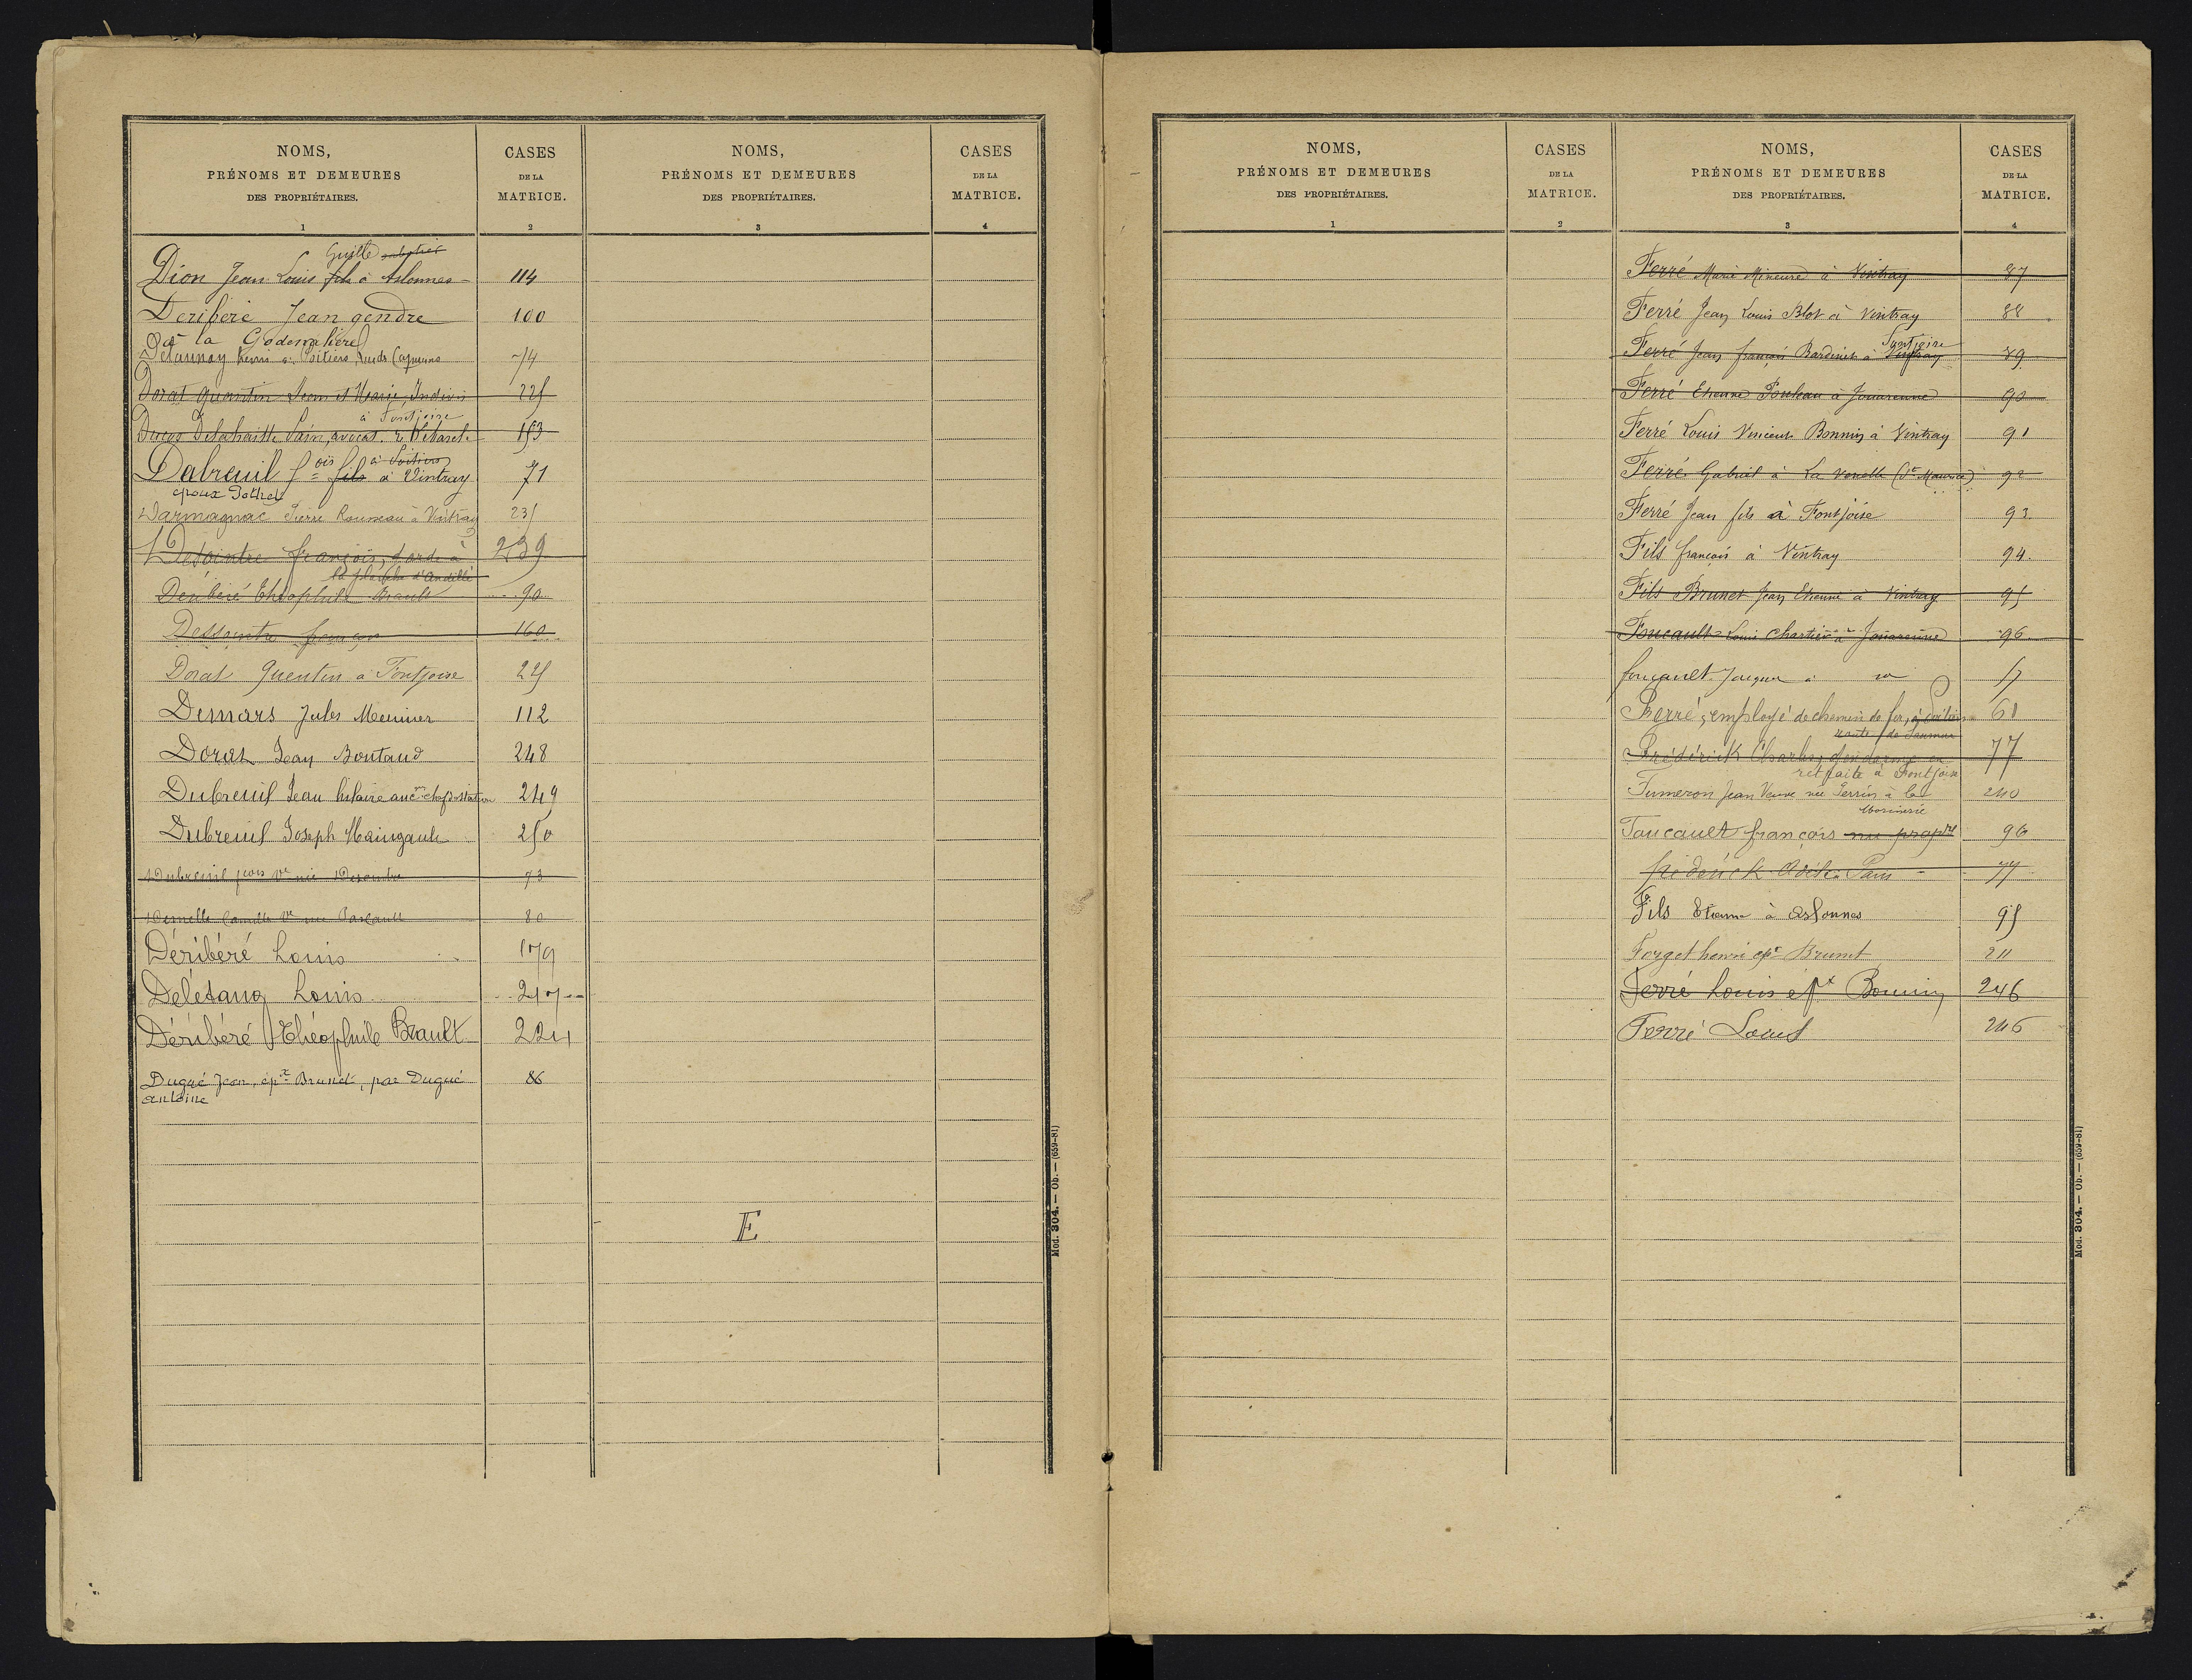 NOMS,
PRÉNOMS ET DEMEURES
DES PROPRIÉTAIRES.
1
CASES
DE LA
MATRICE.
2
NOMS,
PRÉNOMS ET DEMEURES
DES PROPRIÉTAIRES.
3
CASES
DE LA
MATRICE.
4
Guille sabotier
Dion Jean Louis fils à Aslonnes 114
Deribéré Jean gendre 100
à la Godesralière
Delaunay Henri à Poitiers, 74
Dorat Quentin Leon et Marie, Indivis 225
à Fontjoise
Ducos Delahaille avocat. 153
à Poitiers
Dabreuil f=ois fils à Vintray 71
époux Pothet
Darmagnac Pierre Rouneau à Vintray 231
Desaintre françois, garde à 239
la planche d'Andillé
Deribéré Théophile Brault 90
Dessaintre françois 160
Dorat Quentin à Fontjoise 225
Demars Jules Meunier 112
Dorat Jean Boutaud 248
Dubreuil Jean hilaire anc.en chef de station 249
Dubreuil Joseph Maingault 250
Dubreuil fcois Ve née Desaintre 73
Demelle Camille Ve née Pascault 80
Déribéré Louis 179
Delétang Louis 247
Déribéré Théophile Brault 224
Dugué Jean, épx Brunet, par Dugué 86
antoine
E
Mod. 304. — Ob. — (659-81)
NOMS,
PRÉNOMS ET DEMEURES
DES PROPRIÉTAIRES.
1
CASES
DE LA
MATRICE.
2
NOMS,
PRÉNOMS ET DEMEURES
DES PROPRIÉTAIRES.
3
CASES
DE LA
MATRICE.
4
Ferré Marie Mineure à Vintray 87
Ferré Jean Louis Blot à Vintray 88
Fontjoise
Ferré Jean françois Bardinet à Vintray 89
Ferré Etienne Pouleau à Jouarenne 90
Ferré Louis Vincent Bonnin à Vintray 91
Ferré Gabriel à La Vonelle (St Maurice) 92
Ferré Jean fils à Fontjoise 93
Fils françois à Vintray 94
Fils Brunet Jean Etienne à Vintray 95
Foucault Louis Chartier à Jouarenne 96
foucault Jacques à 17
Ferré, employé de chemin de fer, à Poitiers 61
route de Saumur
Frédérick Charles, gendarme en 77
retraite à Fontjoise
Fumeron Jean Veuve née Perrin à la 240
Morinerie
Foucault françois nu proprre 96
frédérick Adèle Paris 77
Fils Etienne à Aslonnes 95
Forget henri épx Brunet 211
Ferré Louis épx Bonnin 246
Ferré Louis 246
Mod. 304. — Ob. — (659-81)